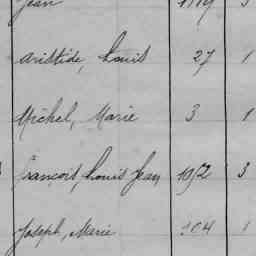 Jean
Aristide, Louis 27 1
Michel, Marie 3 1
François, Louis Jean 3
Joseph, Marie 1